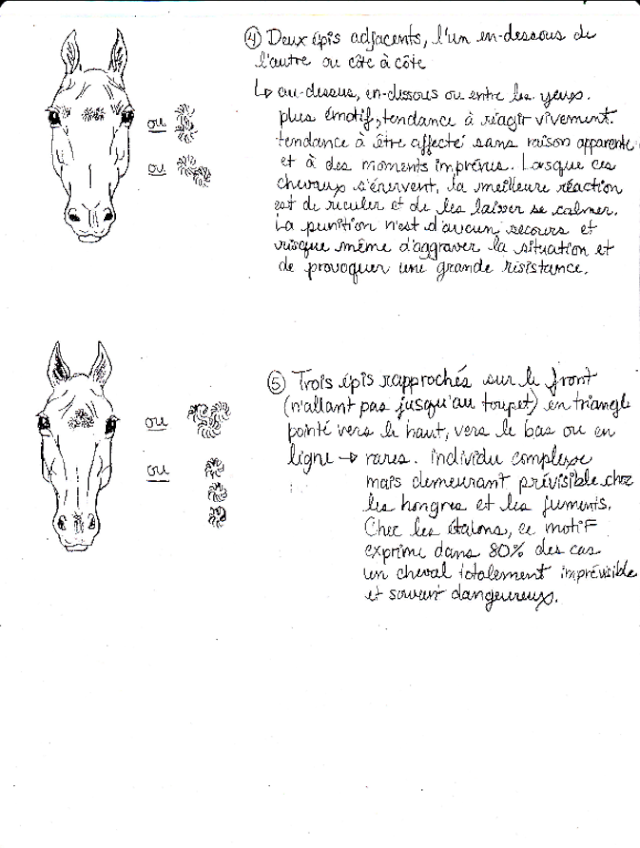 ④ Deux épis adjacents, l'un en-dessous de
l'autre ou côte à côte
↳ au-dessus, en-dessous ou entre les yeux.
plus émotif, tendance à réagir vivement.
tendance à être affecté sans raison apparente
et à des moments imprévus. Lorsque ces
chevaux s'énervent, la meilleure réaction
est de reculer et de les laisser se calmer.
La punition n'est d'aucun secours et
risque même d'aggraver la situation et
de provoquer une grande résistance.
ou
ou
⑤ Trois épis rapprochés sur le front
(n'allant pas jusqu'au toupet) en triangle
pointé vers le haut, vers le bas ou en
ligne → rares. individu complexe
mais demeurant prévisible chez
les hongres et les juments.
Chez les étalons, ce motif
exprime dans 80% des cas
un cheval totalement imprévisible
et souvent dangeureux.
ou
ou